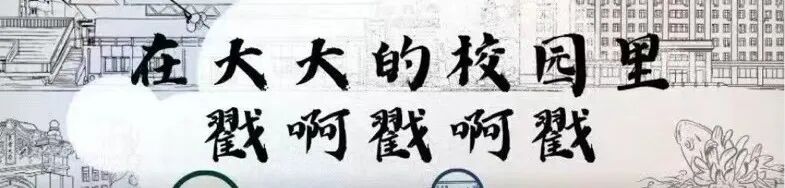 在大大的校园里
戳啊戳啊戳